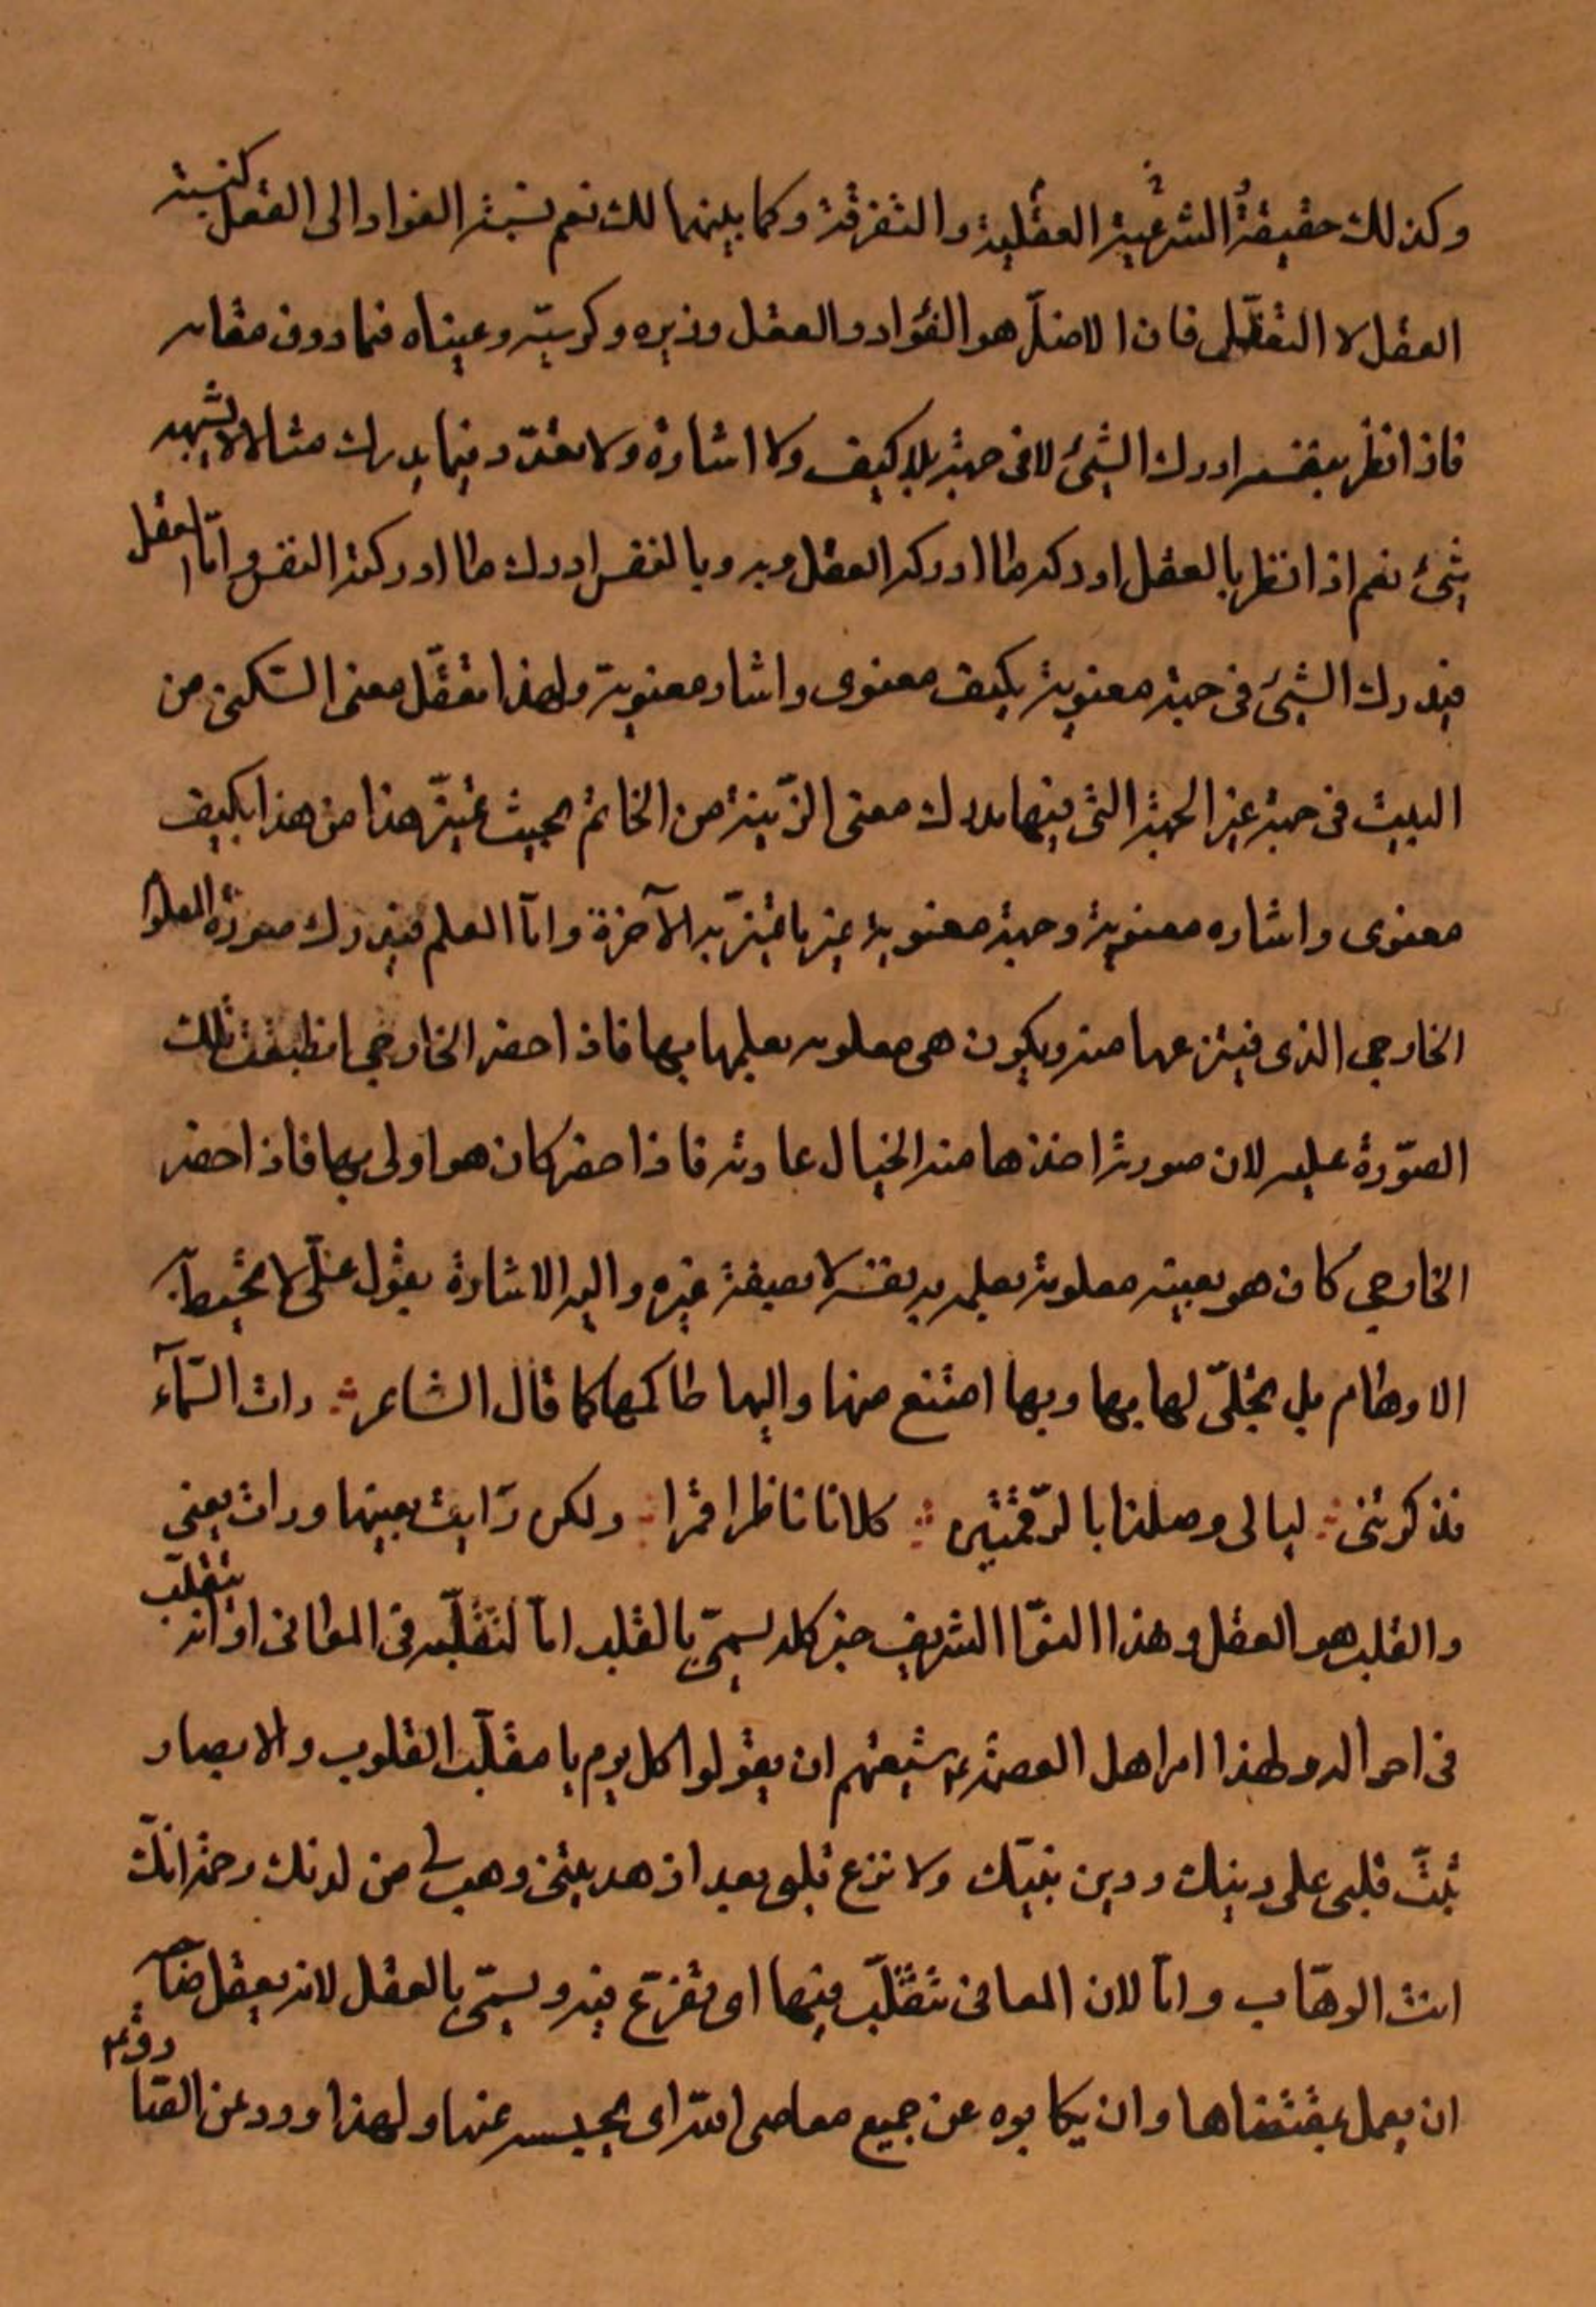 وكذلك حقيقة الشرعية العقلية والتفرقة وكما بينهما لك نعم نسبة الفواد الى العقل كنسبة
العقل لا التعقلى فان الاصل هو الفؤاد والعقل وزيره وكرسيّه وعيناه فيما دون مقامه
فاذا نظر بنفسه ادرك الشئ لا فى جهة بلا كيف ولا اشارة ولا تعدّد فيما يدرك مثالا لا يشبهه
شئ نعم اذا نظر بالعقل ادركه ما ادركه العقل وبه وبالنفس ادرك ما ادركته النفس وامّا العقل
فيدرك الشئ فى جهة معنوية بكيف معنوى واشاره معنوية ولهذا تعقّل معنى السّكنى من
البيت فى جهة غير الجهة التى فيها يدرك معنى الزّينة من الخاتم بحيث تميّز هذا من هذا بكيف
معنوى واشاره معنوية وجهة معنوية غير ما تميّز به الآخرة وامّا العلم فيدرك صورة المعلوم
الخارجى الذى فينزعها منه ويكون هى معلومه يعلمها بها فاذا حضر الخارجى انطبقت تلك
الصّورة عليه لان صورته اخذها منه الخيال عادته فاذا حضر كان هو اولى بها فاذا حضر
الخارجى كان هو بعينه معلومة يعلمه به بنفسه لا بصفة غيره واليه الاشارة بقول علىّ لا تحيط به
الاوهام بل تجلّى لها بها وبها امتنع منها واليها حاكمها كما قال الشاعر رات السّمآء
فذكرتنى ليالى وصلنا بالرّقمتين كلانا ناظر قمرا ولكن رايت بعينها ورات بعينى
والقلب هو العقل وهذا النوّ الشريف خير كله يسمّى بالقلب امّا لتقلّبه فى المعانى او انه يتقلّب
فى احواله ولهذا امر اهل العصمة ع شيعتهم ان يقولوا كل يوم يا مقلّب القلوب والابصار
ثبّت قلبى على دينك ودين نبيّك ولا تزغ قلبى بعد اذ هديتنى وهب لى من لدنك رحمة انّك
انت الوهّاب وامّا لان المعانى تتقلّب فيها اى تفزع فيه ويسمّى بالعقل لانه يعقل صاحبه
ان يعمل بمقتضاها وان يكابوه عن جميع معاصى اللّه اى يحبسه عنها ولهذا ورد عن الصّادق ع